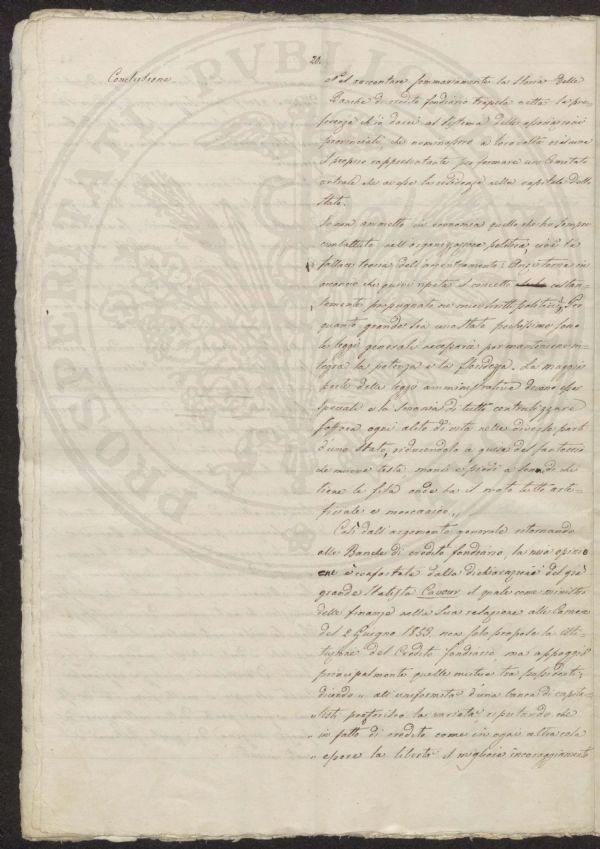 20.
Conclusione
Nel raccontare sommariamente la storia delle
Banche di credito fondiario trapela netta la pre-
ferenza ch'io darei al sistema delle associazioni
provinciali, che nominassero a loro volta ciascuna
il proprio rappresentante per formare un Comitato
centrale che avesse la residenza nella capitale dello
Stato.
Io non ammetto in economia quello che ho sempre
combattuto nell'organizzazione politica, cioè la
fallace teoria dell'accentramento.
che qui si ripeta il concetto costan-
temente propugnato ne' miei scritti politici: Per
quanto grande sia uno stato pochissime sono
le leggi generali necessarie per mantenerne in-
tegra la potenza e la floridezza. La maggior
parte delle leggi amministrative devono esser
speciali e la smania di tutto centralizzare
soffoca ogni alito di vita nelle diverse parti
d'uno Stato, riducendolo a guisa del fantoccio
che muove testa mani e piedi a senno di chi
tiene le fila onde ha il moto tutto arte-
ficiale e meccanico.
Così dall'argomento generale ritornando
alle Banche di credito fondiario, la mia opinio
ne è confortata dalla dichiarazione del già
grande Statista Cavour il quale come ministro
delle finanze nella sua relazione alle Camere
del 2 Giugno 1853. non solo propose la isti-
tuzione del Credito fondiario, ma appoggiò
principalmente quelle mutue tra possidenti,
dicendo „ all'uniformità d'una banca di capita-
listi preferisco la varietà reputando che
„ in fatto di credito come in ogni altra cosa
„ essere la libertà il migliore incoraggiamento
PROSPERITATI PUBLICAE